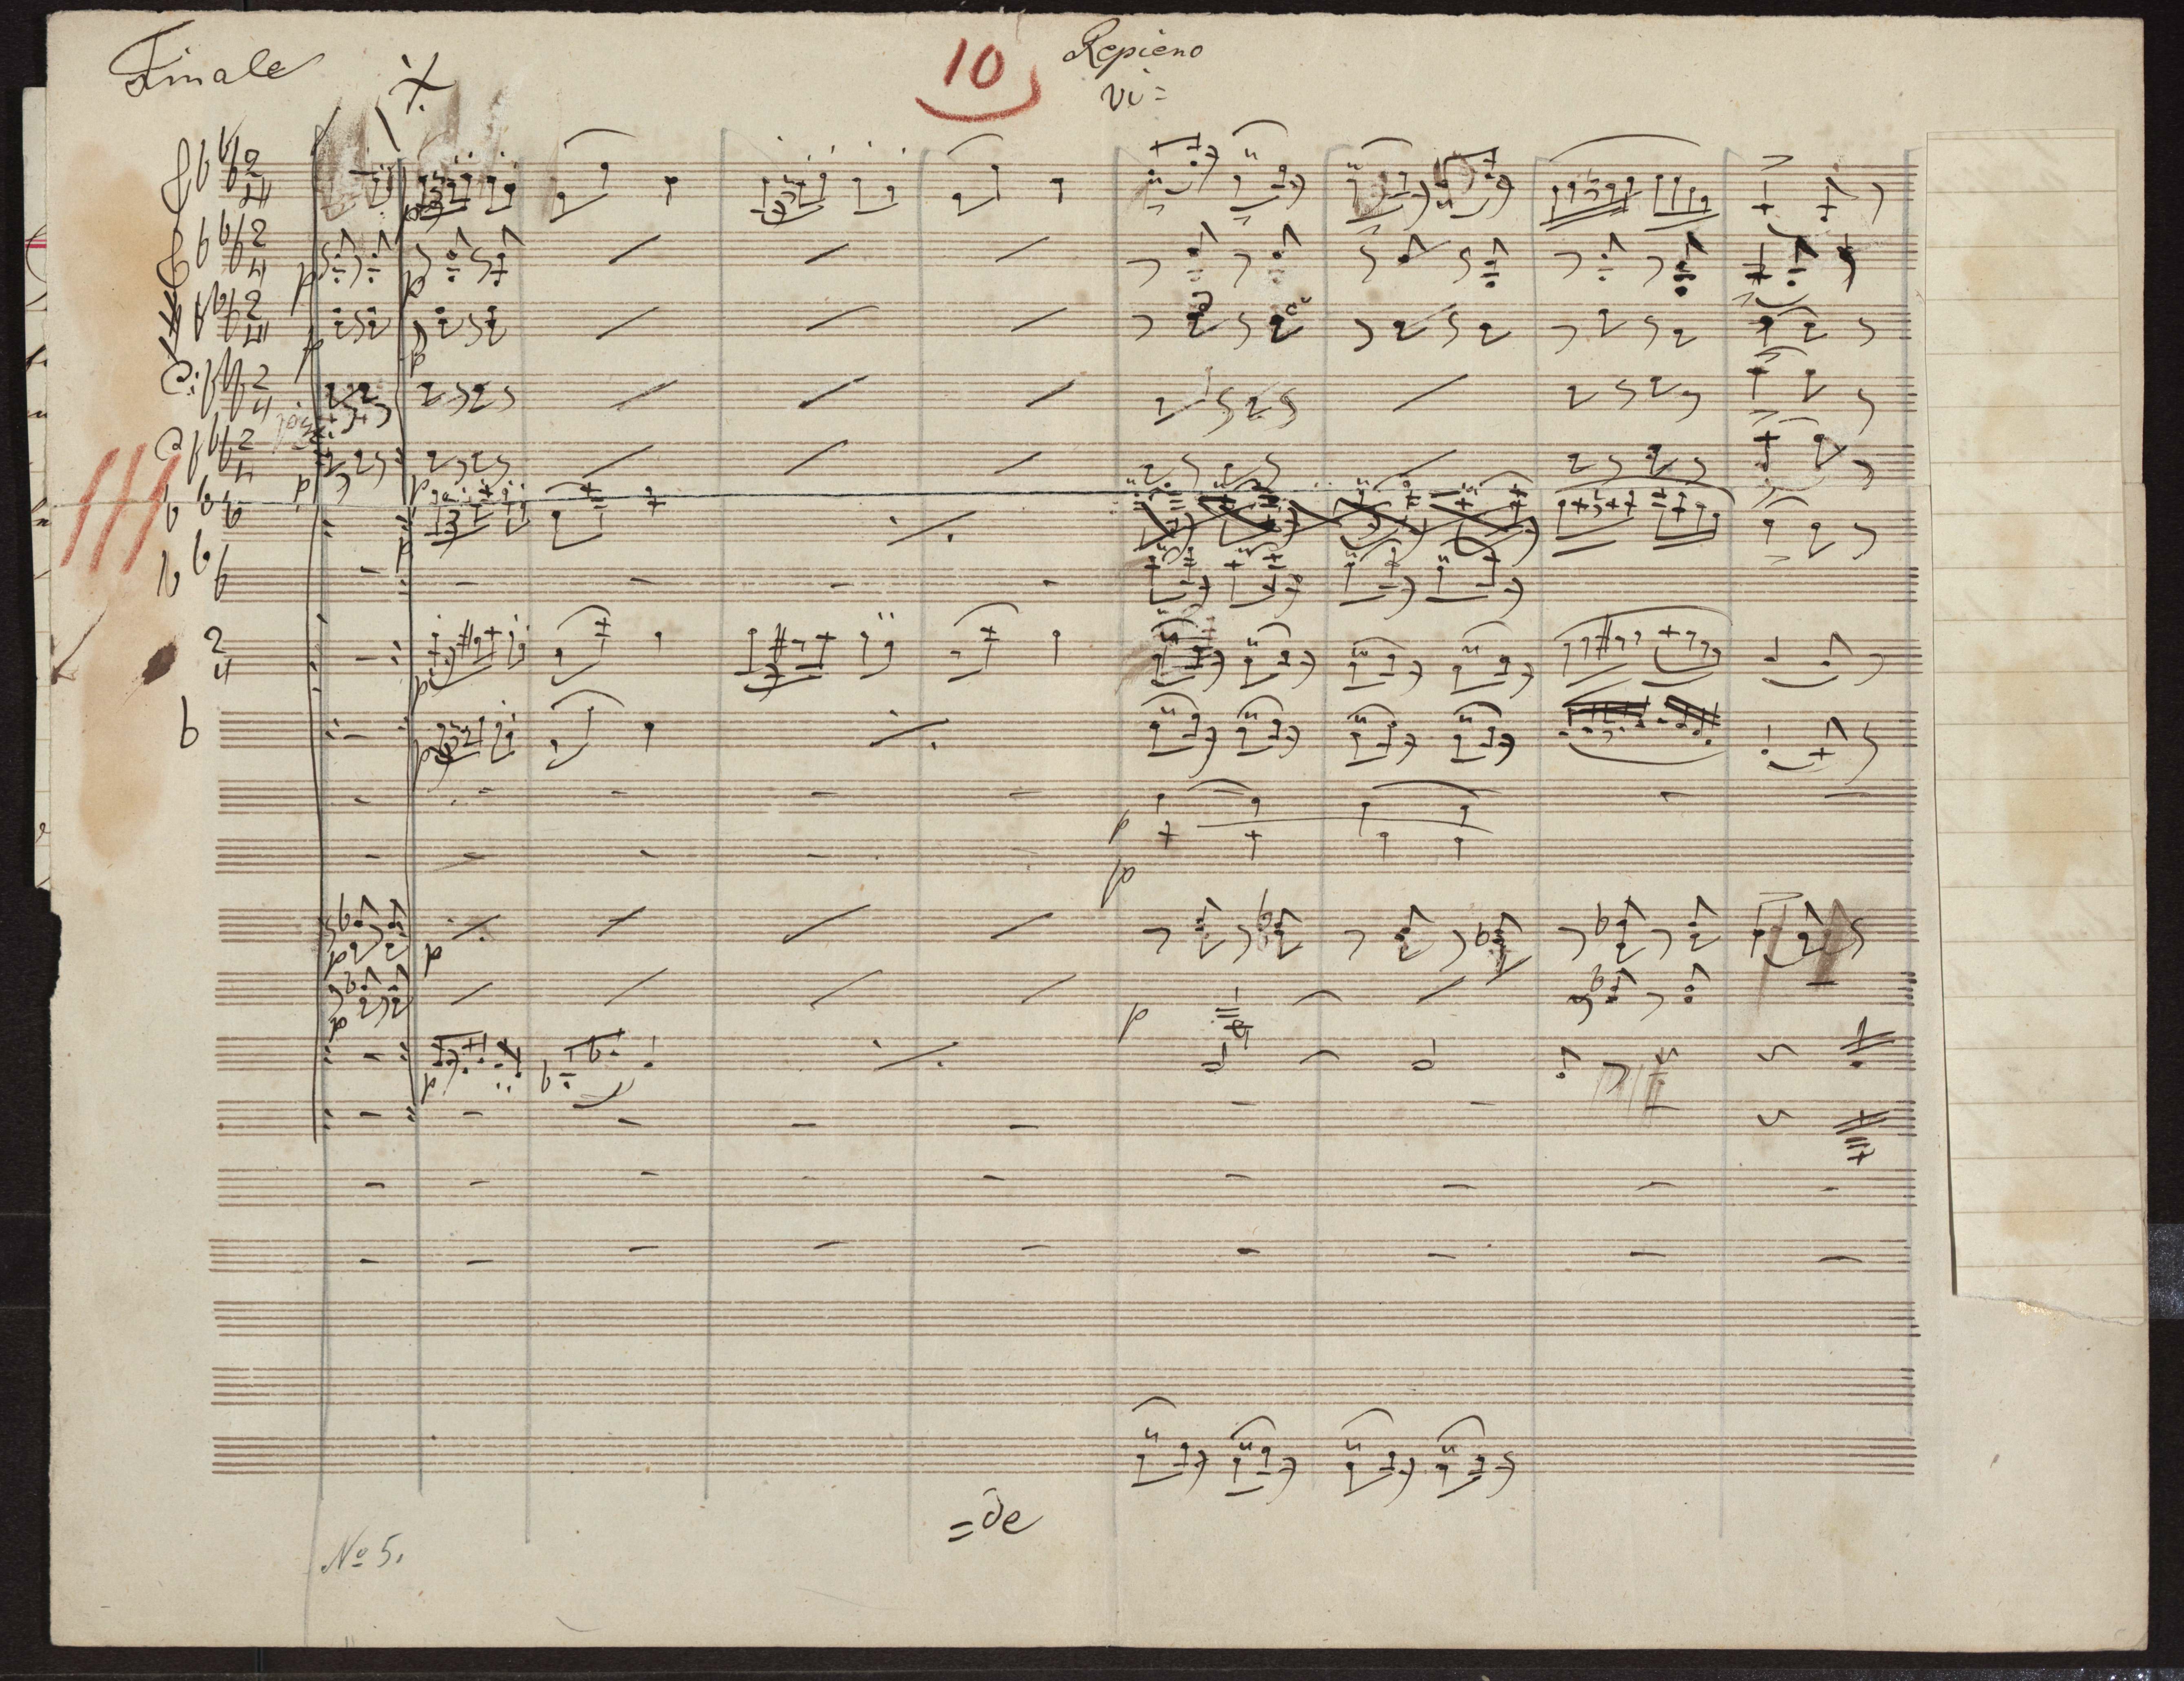 Finale
10
Repieno
vi=
=de
No 5.